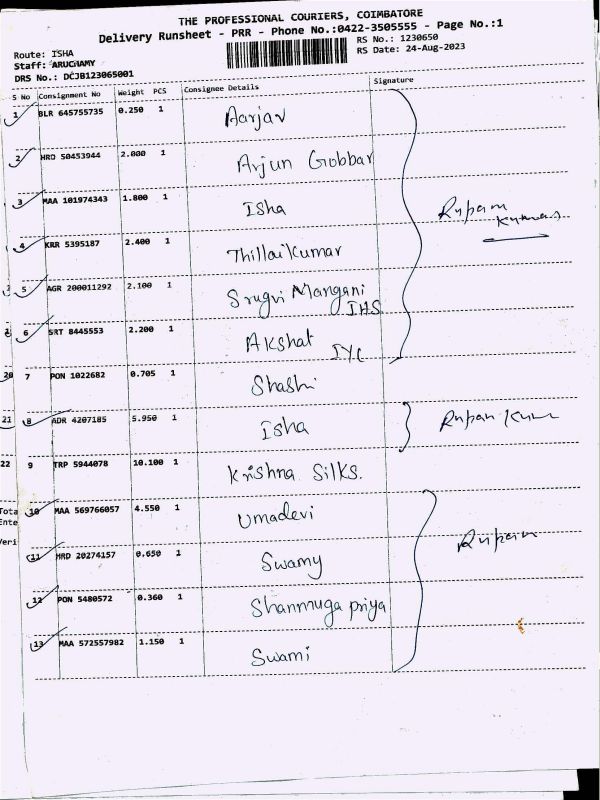 THE PROFESSIONAL COURIERS, COIMBATORE
Delivery Runsheet - PRR - Phone No.:0422-3505555 - Page No.:1
Route: ISHA
RS No.: 1230650
Staff: ARUCHAMY
RS Date: 24-Aug-2023
DRS No.: DCJB123065001
S No Consignment No Weight PCS Consignee Details Signature
1 BLR 645755735 0.250 1 Aarjav
2 HRD 50453944 2.000 1 Arjun Gobbar
3 MAA 101974343 1.800 1 Isha Rupam
Kumar
4 KRR 5395187 2.400 1 Thillaikumar
5 AGR 200011292 2.100 1 Srugvi Mangani
IHS
6 SRT 8445553 2.200 1 Akshat
IYC
20 7 PON 1022682 0.705 1 Shashi
21 8 ADR 4207185 5.950 1 Isha Rupan Kum
22 9 TRP 5944078 10.100 1 Krishna Silks.
Tota 10 MAA 569766057 4.550 1 Umadevi
Ente
Veri
11 HRD 20274157 0.650 1 Swamy Rupam
12 PON 5480572 0.360 1 Shanmuga priya
13 MAA 572557982 1.150 1 Swami